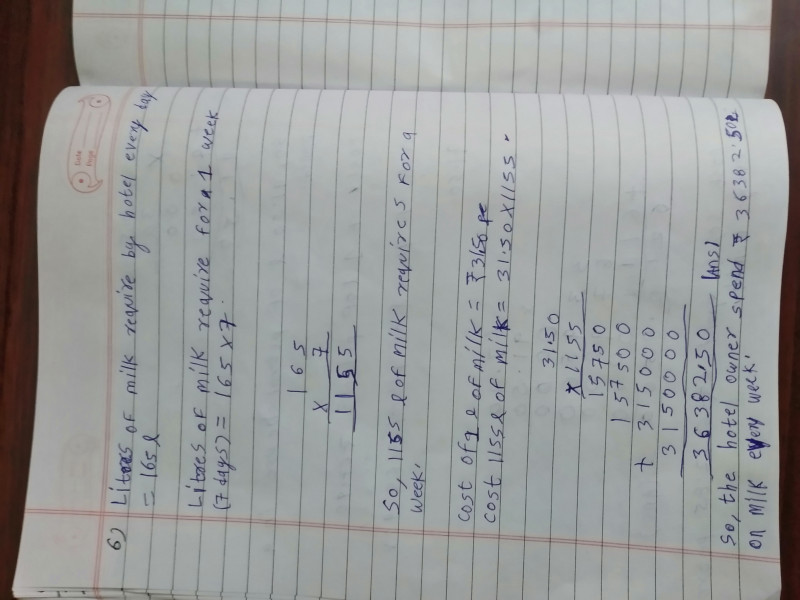 Date
Page
6) Litres of milk require by hotel every day
= 165 l
Litres of milk require for 1 week
(7 days) = 165 x 7.
165
x 7
1155
So, 1155 l of milk requires for a
week.
Cost of 1 l of milk = ₹ 31.50
cost 1155 l of milk = 31.50 X 1155.
31.50
x 1155
15750
157500
+ 315000
3150000
36382.50 (Ans)
So, the hotel owner spend ₹ 36382.50
on milk every week.